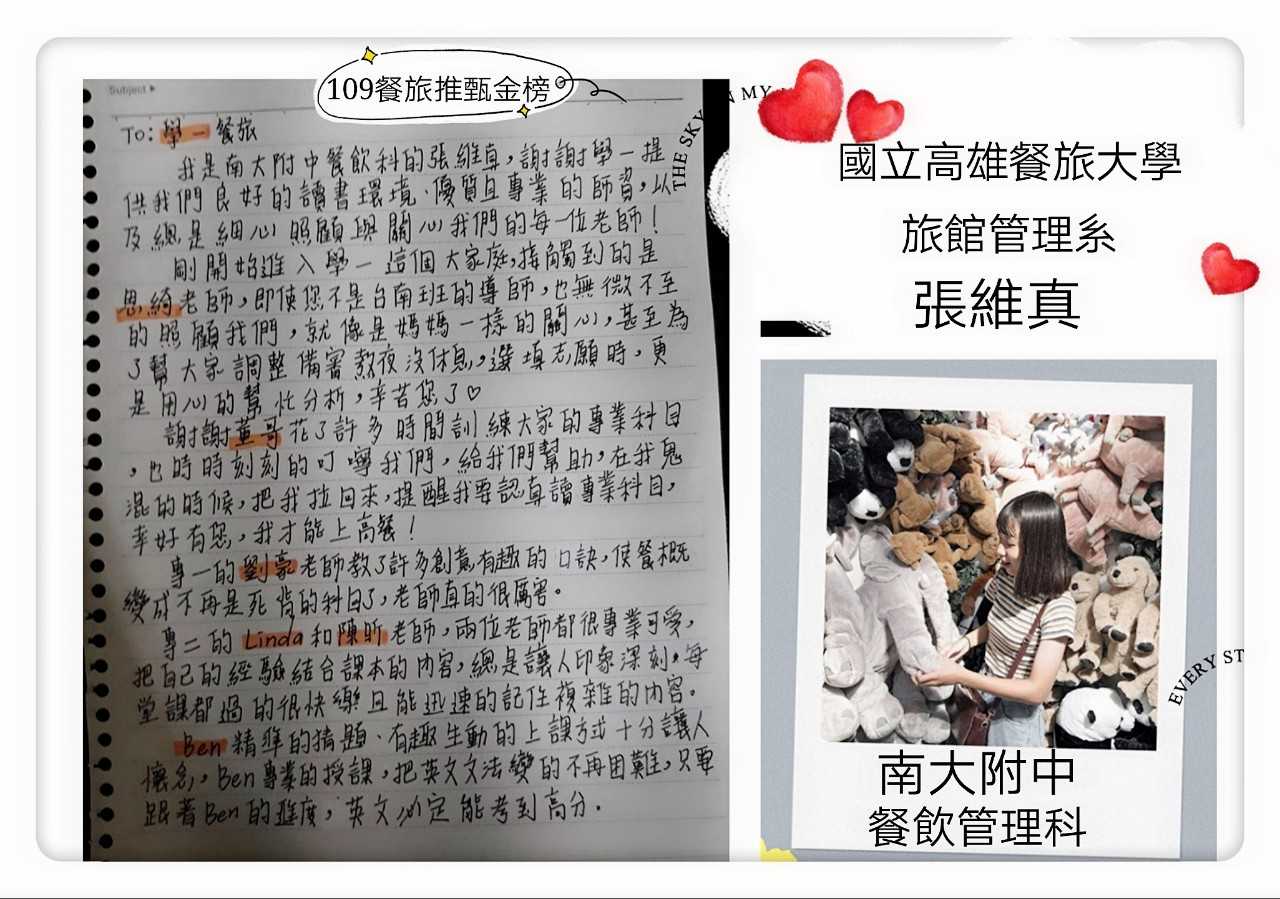 109餐旅推甄金榜
Subject
To: 學一餐旅
我是南大附中餐飲科的張維真,謝謝學一提
供我們良好的讀書環境、優質且專業的師資,以
及總是細心照顧與關心我們的每一位老師!
剛開始進入學一這個大家庭,接觸到的是
思綺老師,即使您不是台南班的導師,也無微不至
的照顧我們,就像是媽媽一樣的關心,甚至為
了幫大家調整備審熬夜沒休息,選填志願時,更
是用心的幫忙分析,辛苦您了♡
謝謝董哥花了許多時間訓練大家的專業科目
,也時時刻刻的叮嚀我們,給我們幫助,在我鬼
混的時候,把我拉回來,提醒我要認真讀專業科目,
幸好有您,我才能上高餐!
專一的劉豪老師教了許多創意有趣的口訣,使餐概
變成不再是死背的科目了,老師真的很厲害。
專二的Linda和陳昕老師,兩位老師都很專業可愛,
把自己的經驗結合課本的內容,總是讓人印象深刻,每
堂課都過的很快樂且能迅速的記住複雜的內容。
Ben精準的猜題、有趣生動的上課方式十分讓人
懷念,Ben專業的授課,把英文文法變的不再困難,只要
跟著Ben的進度,英文必定能考到高分.
THE SKY
N MY
國立高雄餐旅大學
旅館管理系
張維真
EVERY ST
南大附中
餐飲管理科